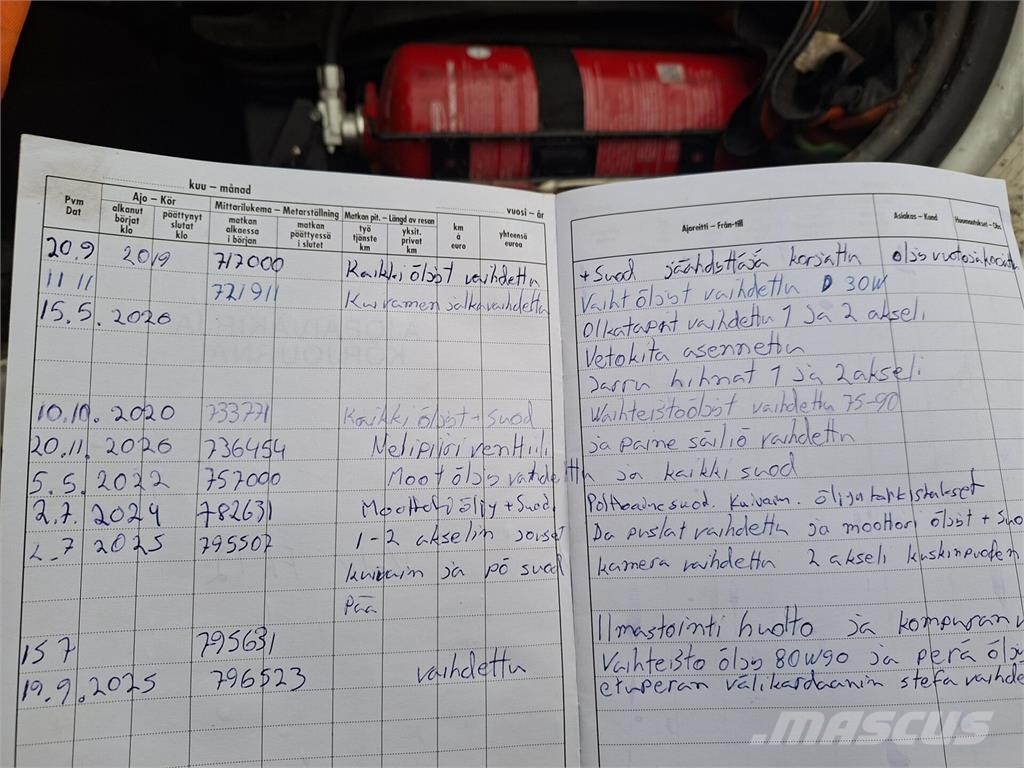 kuu – månad
vuosi – år
Pvm Dat
Ajo – Kör
alkanut börjat klo
päättynyt slutat klo
Mittarilukema – Metarställning
matkan alkaessa i början
matkan päättyessä i slutet
Matkan pit. – Längd av resan
työ tjänste km
yksit. privat km
km à euro
yhteensä euroa
Ajoreitti – Från-till
Asiakas – Kund
Huomautukset – Obs.
20.9 2019 717000 Kaikki öljyt vaihdettu + suod jäähdyttäjä korjattu
11 11 721911 Kuivamen jalka vaihdettu Vaiht öljyt vaihdettu 30W
15.5. 2020 Olkatapit vaihdettu 1 ja 2 akseli
Vetokita asennettu
Jarru hihnat 1 ja 2 akseli
10.10. 2020 733771 Kaikki öljyt + suod Vaihteistoöljyt vaihdettu 75-90
20.11. 2020 736454 Nelipiiri venttiili ja paine säiliö vaihdettu
5.5. 2022 757000 Moot öljy vaihdettu ja kaikki suod
2.7. 2024 782631 Moottori öljy + suod Polttoainesuod. Kuivaim. öljyntarkistukset
2_7 2025 795507 1-2 akselin jouset Da puslat vaihdettu ja moottori öljyt + suo
kuivain ja pö suod kamera vaihdettu 2 akseli kuskinpuolen
Pää
15 7 795631 Ilmastointi huolto ja kompuran
19.9.2025 796523 vaihdettu Vaihteisto öljy 80W90 ja perä ölj
etuperan välikardaanin stefa vaihde
MASCUS